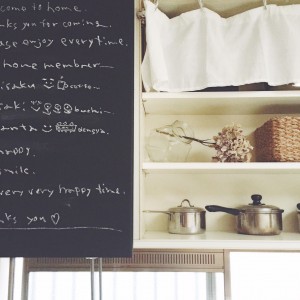 come to home.
nks you for coming.
ase enjoy every time.
home member
isaku
aki
anta
happy.
mile.
very very happy time.
nks you ♡